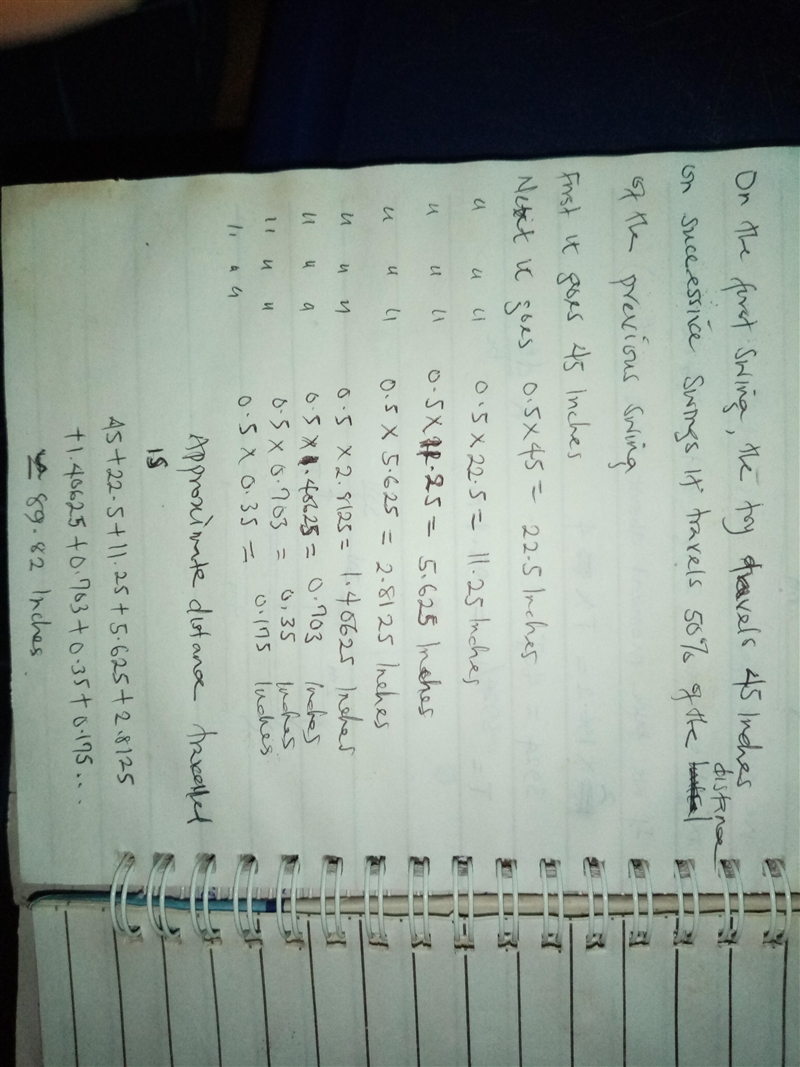 On the first swing, the toy travels 45 Inches
on successive swings it travels 50% of the distance
of the previous swing
first it goes 45 Inches
Next it goes 0.5 x 45 = 22.5 Inches
" " " 0.5 x 22.5 = 11.25 Inches
" " " 0.5 x 11.25 = 5.625 Inches
" " " 0.5 x 5.625 = 2.8125 Inches
" " " 0.5 x 2.8125 = 1.40625 Inches
" " " 0.5 x 1.40625 = 0.703 Inches
" " " 0.5 x 0.703 = 0.35 Inches
" " " 0.5 x 0.35 = 0.175 Inches
Approximate distance travelled
is
45 + 22.5 + 11.25 + 5.625 + 2.8125
+ 1.40625 + 0.703 + 0.35 + 0.175...
≃ 89.82 Inches